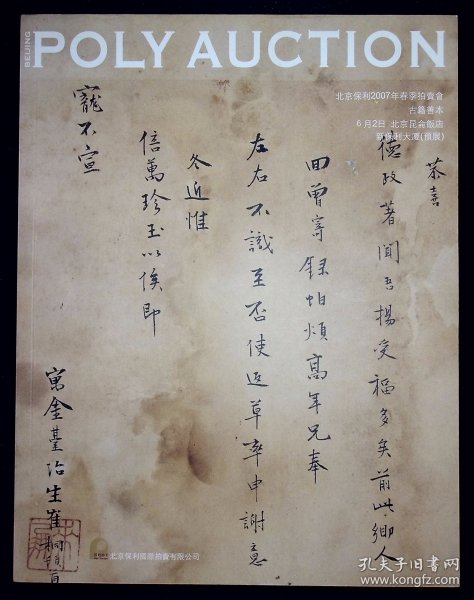 BEIJING
POLY AUCTION
北京保利2007年春季拍賣會
古籍善本
6月2日 北京昆侖飯店
新保利大廈(預展)
恭喜
德政著聞吾揚受福多矣前此鄉人
回曾寄録帕煩高年兄奉
左右不識至否使返草率申謝意
冬近惟
倍萬珍玉以俟即
寵不宣
寓金臺治生崔桐頓首
北京保利國際拍賣有限公司
孔夫子旧书网
www.kongfz.com